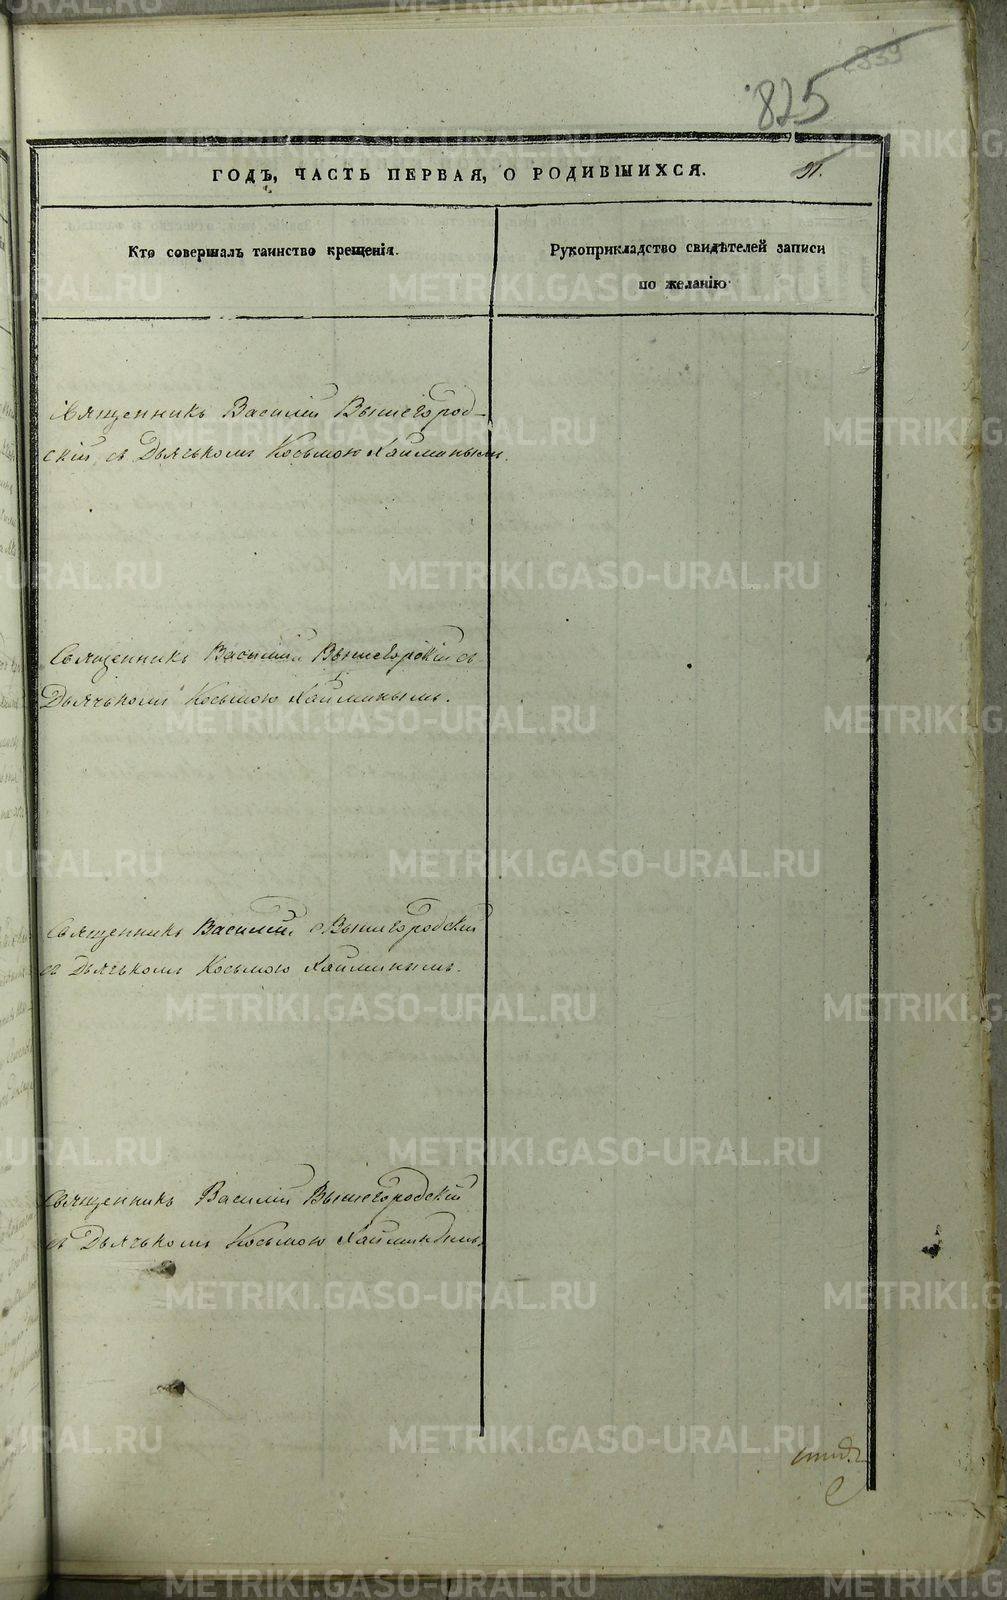 839
825
ГОДЪ, ЧАСТЬ ПЕРВАЯ, О РОДИВШИХСЯ.
Кто совершалъ таинство крещенія.
Рукоприкладство свидѣтелей записи
по желанію
Священникъ Василій Вышегород-
скій съ Дьячькомъ Косьмою Хайминымъ.
Священникъ Василій Вышегорскій съ
Дьячькомъ Косьмою Хайминымъ.
Священникъ Василій Вышегородскій
съ Дьячькомъ Косьмою Хайминымъ.
Священникъ Василій Вышегородскій
съ Дьячькомъ Косьмою Хайминымъ.
METRIKI.GASO-URAL.RU